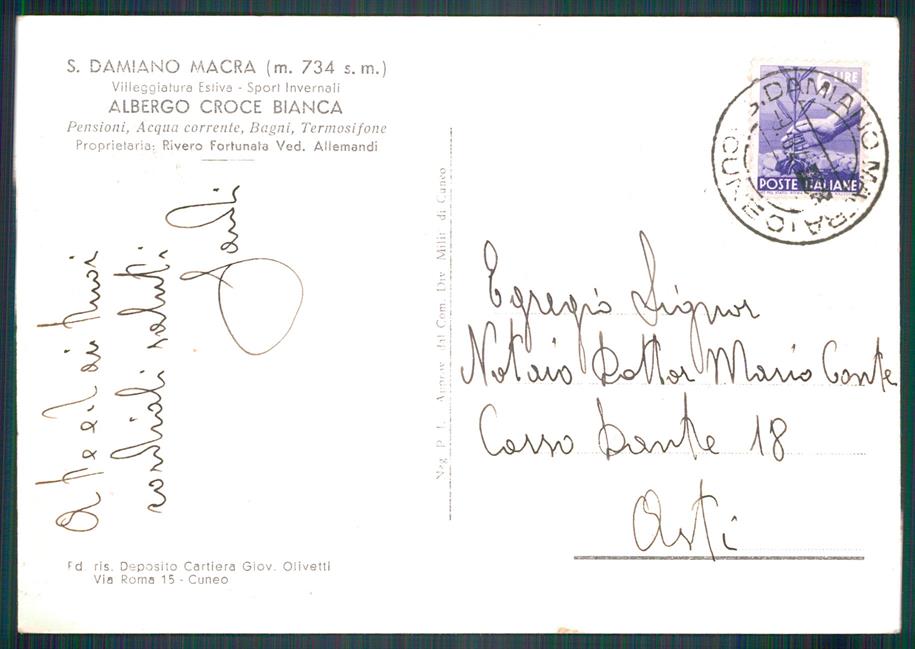 S. DAMIANO MACRA (m. 734 s. m.)
Villeggiatura Estiva - Sport Invernali
ALBERGO CROCE BIANCA
Pensioni, Acqua corrente, Bagni, Termosifone
Proprietaria: Rivero Fortunata Ved. Allemandi
A Lei ed ai Suoi
cordiali saluti
Fd. ris. Deposito Cartiera Giov. Olivetti
Via Roma 15 - Cuneo
Neg. P. L. Approv. dal Com. Div. Milit. di Cuneo
LIRE
POSTE ITALIANE
S. DAMIANO MACRA (CUNEO)
Egregio Signor
Notaio Dottor Mario Conte
Corso Dante 18
Asti